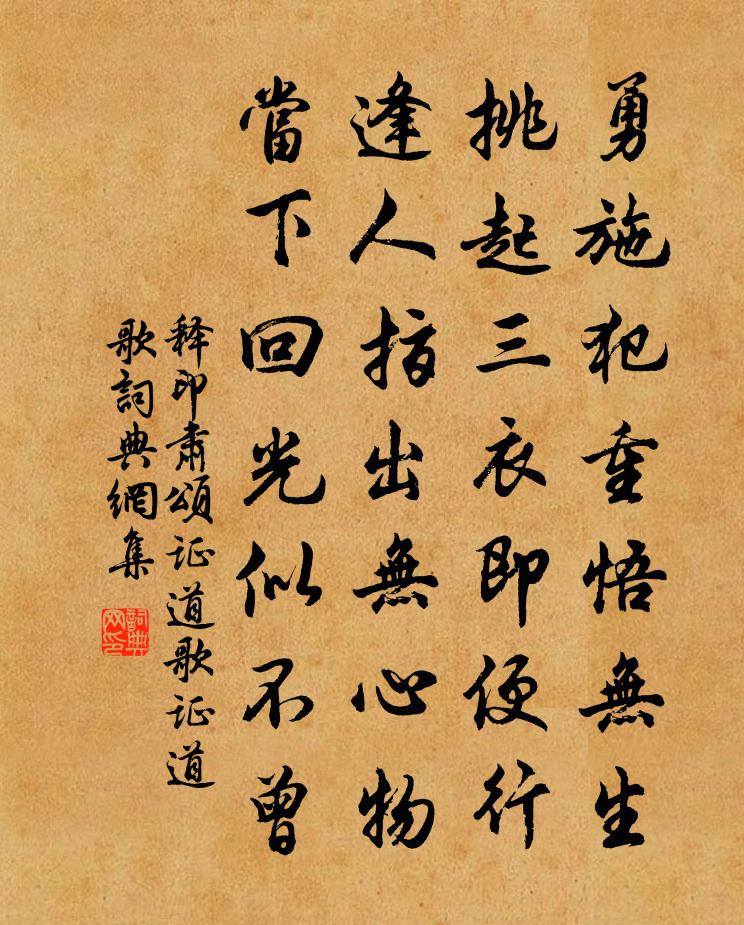 勇施犯重悟無生
挑起三衣即便行
逢人指出無心物
當下回光似不曾
释印肃頌证道歌证道
歌詞典網集
詞典
网印